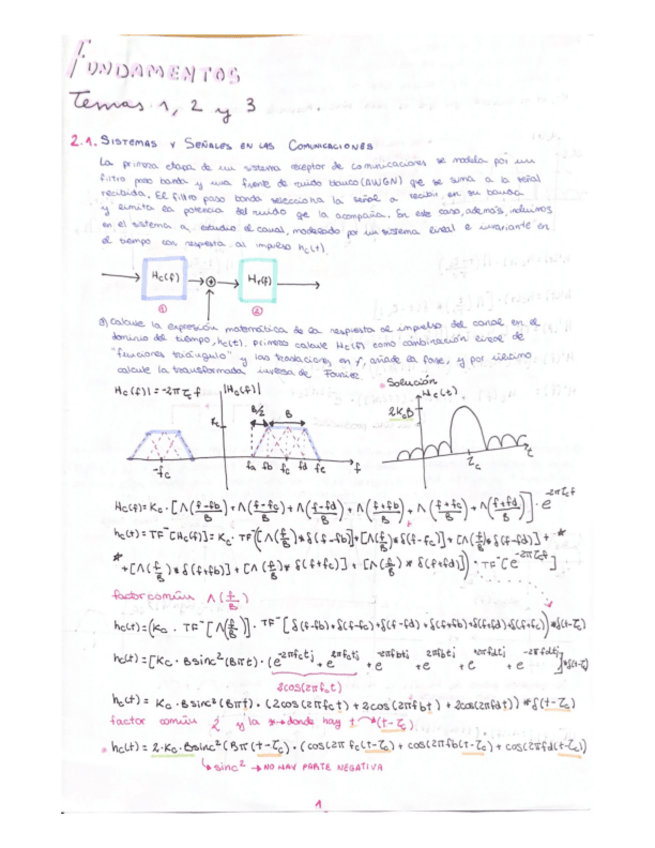 FUNDAMENTOS
Temas 1, 2 y 3
2.1. SISTEMAS Y SEÑALES EN LAS COMUNICACIONES
La primera etapa de un sistema receptor de comunicaciones se modela por un
filtro paso banda y una fuente de ruido blanco (AWGN) que se suma a la señal
recibida. El filtro paso banda selecciona la señal a recibir en su banda
y limita la potencia del ruido que la acompaña. En este caso, además, incluimos
en el sistema a estudio el canal, modelado por un sistema lineal e invariante en
el tiempo con respuesta al impulso hc(t).
Hc(f) + Hr(f)
① ②
a) Calcule la expresión matemática de la respuesta al impulso del canal en el
dominio del tiempo, hc(t). Primero calcule Hc(f) como combinación lineal de
"funciones triángulo" y las traslaciones en f, añade la fase, y por último
calcule la transformada inversa de Fourier.
Solución
Hc(f)| = -2πτc f |Hc(f)| Hc(t)
B/2 B 2KcB
Kc
-fc fa fb fc fd fe f τc t
Hc(f) = Kc · [Λ((f-fb)/B) + Λ((f-fc)/B) + Λ((f-fd)/B) + Λ((f+fb)/B) + Λ((f+fc)/B) + Λ((f+fd)/B)] · e^-2πτcf
hc(t) = TF⁻[Hc(f)] = Kc · TF⁻([Λ(f/B) * δ(f-fb)] + [Λ(f/B) * δ(f-fc)] + [Λ(f/B) * δ(f-fd)] + *
* + [Λ(f/B) * δ(f+fb)] + [Λ(f/B) * δ(f+fc)] + [Λ(f/B) * δ(f+fd)]) · TF⁻[e^-2πτcf]
factor común Λ(f/B)
hc(t) = (Kc · TF⁻[Λ(f/B)] · TF⁻[δ(f-fb) + δ(f-fc) + δ(f-fd) + δ(f+fb) + δ(f+fd) + δ(f+fc)]) * δ(t-τc)
hc(t) = [Kc · B sinc²(Bπt) · (e^-2πfctj + e^2πfctj + e^-2πfbtj + e^2πfbtj + e^2πfdtj + e^-2πfdtj)] * δ(t-τc)
2cos(2πfct)
hc(t) = Kc · B sinc²(Bπt) · (2cos(2πfct) + 2cos(2πfbt) + 2cos(2πfdt)) * δ(t-τc)
factor común 2 y la * → donde hay t → (t-τc)
hc(t) = 2·Kc·B sinc²(Bπ(t-τc)·(cos(2πfc(t-τc) + cos(2πfb(t-τc) + cos(2πfd(t-τc))
↳ sinc² → NO HAY PARTE NEGATIVA
1